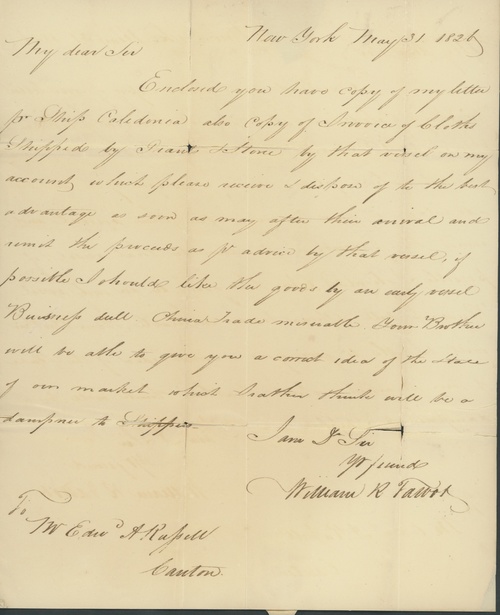 New York May 31 1826
My dear Sir
Enclosed you have copy of my letter
pr Ship Caledonia also copy of Invoice of Cloths
Shipped by & Stone by that vessel on my
account, which please receive & dispose of to the best
advantage as soon as may after their arrival and
remit the proceeds as pr advice by that vessel, if
possible I should like the goods by an early vessel
Buisness dull China Trade miserable. Your Brother
will be able to give you a correct idea of the State
of our market which I rather think will be a
dampner to Shippers
I am Dr Sir
Yr friend
William R Talbot
To
Mr Edwd A Russell
Canton.